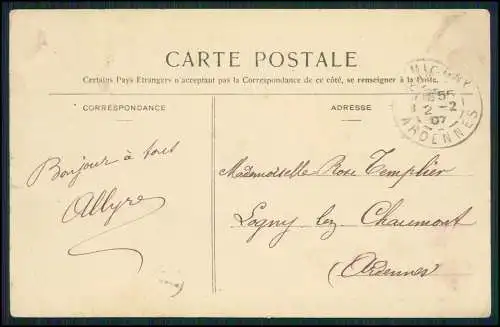 CARTE POSTALE
Certains Pays Etrangers n'acceptant pas la Correspondance de ce côté, se renseigner à la Poste.
CORRESPONDANCE
ADRESSE
55
2 -2
07
ARDENNES
Bonjour à tous
Allyre
Mademoiselle Rose Templier
Logny lez Chaumont
(Ardennes)